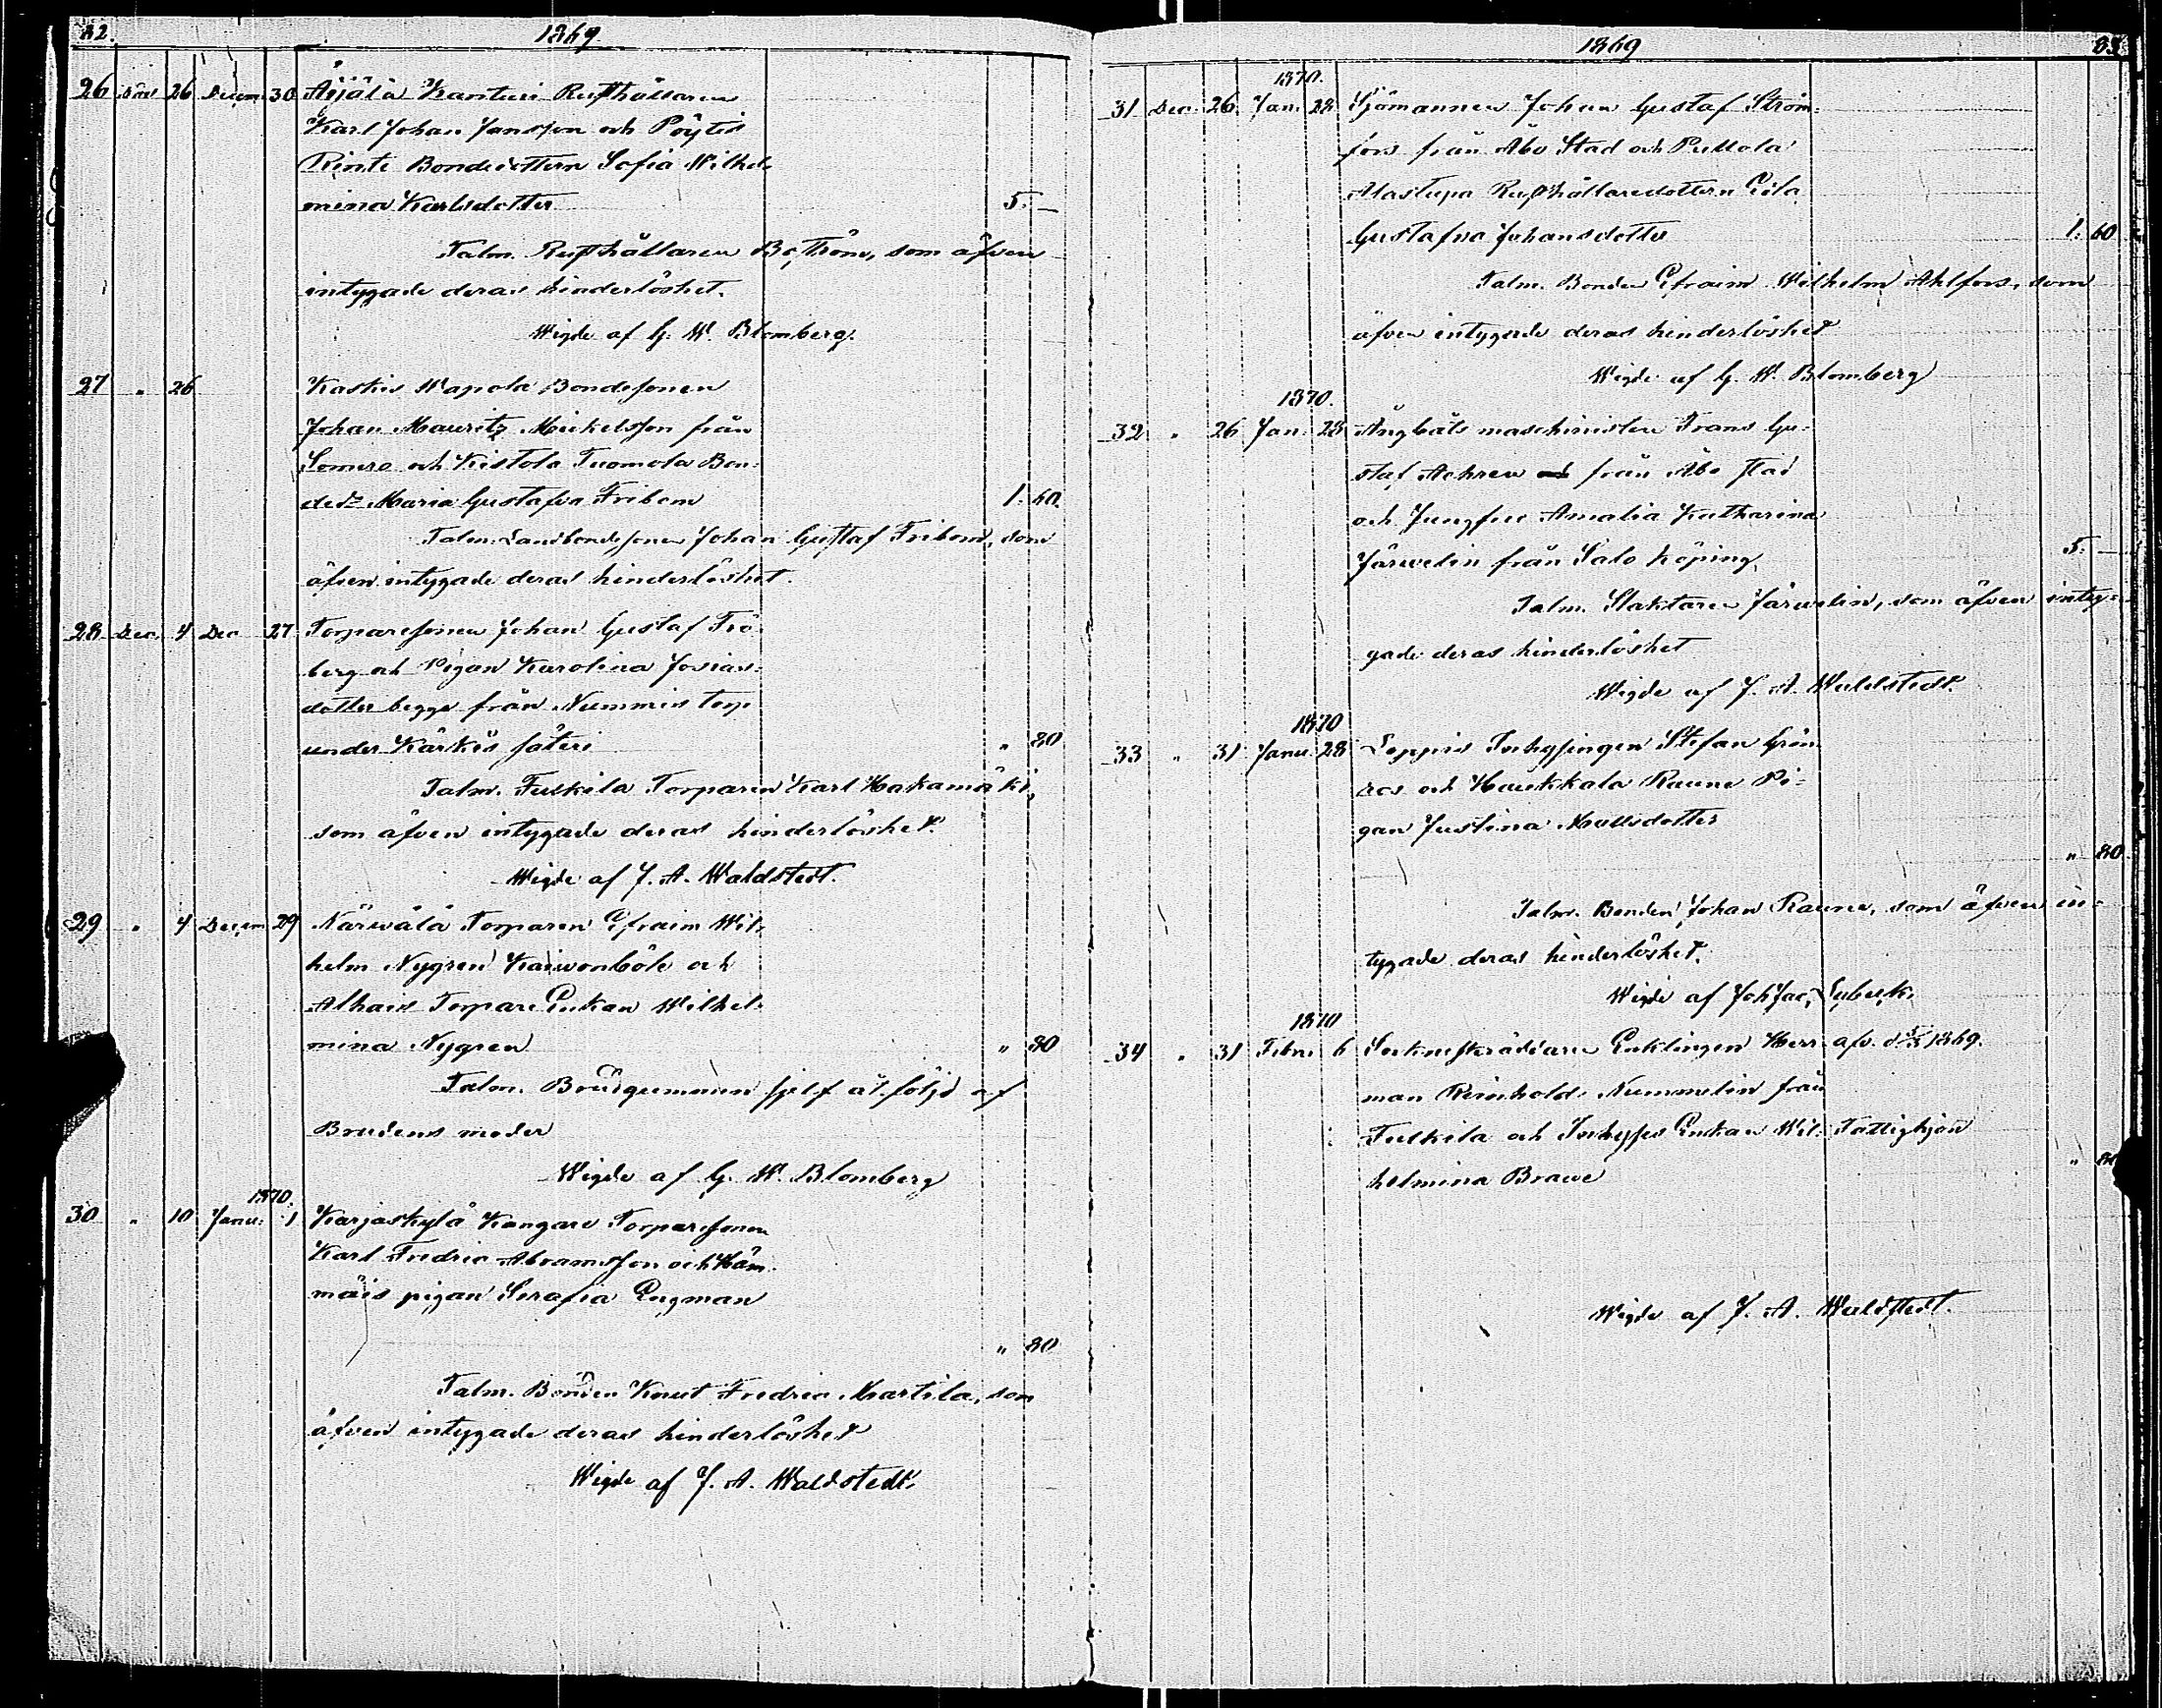 82.
1869
26 Nov 26 Decem 30 Äijälä Kanturi Rusthållaren
Karl Johan Jansson och Pöytis
Rinte Bondedottern Sofia Wilhel-
mina Karlsdotter 5. —
Talm. Rusthållaren Boström, som äfven
intygade deras hinderlöshet.
Wigde af G. W. Blomberg.
27 " 26 Kaskis Wapola Bondesonen
Johan Mauritz Mickelsson från
Somero och Kistola Tuomola Bon-
ded:r Maria Gustafva Fribom 1. 60.
Talm. Landbondesonen Johan Gustaf Fribom, som
äfven intygade deras hinderlöshet.
28 Dec. 4 Dec 27 Torparesonen Johan Gustaf Frö-
berg och Pigan Karolina Josias-
dotter begge från Nummis torp
under Kärkis säteri " 80
Talm. Tuskila Torparen Karl Hakamäki,
som äfven intygade deras hinderlöshet.
Wigde af J. A. Waldstedt.
29 " 4 Decem 29 Närwälä Torparen Efraim Wil-
helm Nygren Kaiwonböle och
Alhais Torpare Enkan Wilhel-
mina Nygren " 80
Talm. Brudgummen sjelf åtföljd af
Brudens moder
Wigde af G. W. Blomberg
1870.
30 " 10 Janu. 1 Karjaskylä Kangare Torparesonen
Karl Fredric Abramsson och Häm-
mäis pigan Serafia Engman
" 80
Talm. Bonden Knut Fredric Martila, som
äfven intygade deras hinderlöshet
Wigde af J. A. Waldstedt.
1869
83
1870.
31 Dec. 26 Jan. 28 Sjömannen Johan Gustaf Ström-
fors från Åbo Stad och Pullola
Alastupa Rusthållaredottern Eila
Gustafva Johansdotter 1. 60
Talm. Bonden Efraim Wilhelm Ahlfors, som
äfven intygade deras hinderlöshet
Wigde af G. W. Blomberg
1870.
32 " 26 Jan. 28 Ångbåts maschinisten Frans Gu-
staf Achren från Åbo stad
och Jungfru Amalia Katharina
Järvelin från Salo köping. 5. —
Talm. Slaktaren Järvelin, som äfven inty-
gade deras hinderlöshet
Wigde af J. A. Waldstedt.
1870
33 " 31 Janu. 28 Loppis Inhysingen Stefan Grön-
roos och Haukkala Raune Pi-
gan Justina Mattsdotter
" 80
Talm. Bonden Johan Raune, som äfven in-
tygade deras hinderlöshet.
Wigde af Joh Jac. Lybeck.
1870
34 " 31 Febr. 6 Sockneskräddaren Enklingen Herr- afv. d 1869.
man Reinhold Nummelin från
Tuskila och Inhyses Enkan Wil- Fattighjon
helmina Brawe " 80
Wigde af J. A. Waldstedt.